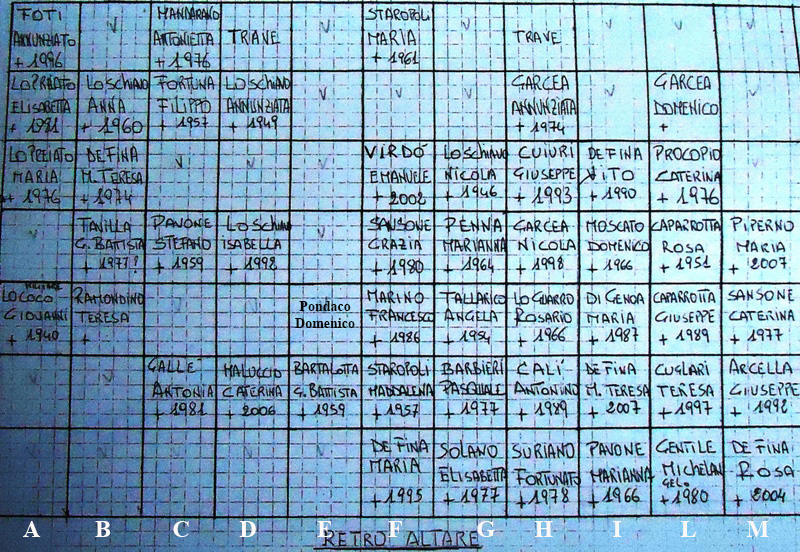 FOTI
ANNUNZIATO
+ 1996
MANDARANO
ANTONIETTA
+ 1976
TRAVE
STAROPOLI
MARIA
+ 1961
TRAVE
LOPREIATO
ELISABETTA
+ 1991
LOSCHIAVO
ANNA
+ 1960
FORTUNA
FILIPPO
+ 1957
LOSCHIAVO
ANNUNZIATA
+ 1949
GARCEA
ANNUNZIATA
+ 1974
GARCEA
DOMENICO
+
LOPREIATO
MARIA
+ 1976
DE FINA
M. TERESA
+ 1974
VIRDÓ
EMANUELE
+ 2002
LOSCHIAVO
NICOLA
+ 1946
CUIURI
GIUSEPPE
+ 1993
DE FINA
VITO
+ 1990
PROCOPIO
CATERINA
+ 1976
TAVILLA
G. BATTISTA
+ 1977?
PAVONE
STEFANO
+ 1959
LOSCHIAVO
ISABELLA
+ 1998
SANSONE
GRAZIA
+ 1980
PENNA
MARIANNA
+ 1964
GARCEA
NICOLA
+ 1998
MOSCATO
DOMENICO
+ 1966
CAPARROTTA
ROSA
+ 1951
PIPERNO
MARIA
+ 2007
LOCOCO
GIOVANNI
+ 1940
RAMONDINO
TERESA
+
Pondaco
Domenico
MARINO
FRANCESCO
+ 1986
TALLARICO
ANGELA
+ 1954
LO GUARRO
ROSARIO
+ 1966
DI GENOA
MARIA
+ 1987
CAPARROTTA
GIUSEPPE
+ 1989
SANSONE
CATERINA
+ 1977
GALLE'
ANTONIA
+ 1981
MALUCCIO
CATERINA
+ 2006
BARTALOTTA
G. BATTISTA
+ 1959
STAROPOLI
MADDALENA
+ 1957
BARBIERI
PASQUALE
+ 1977
CALI'
ANTONINO
+ 1989
DE FINA
M. TERESA
+ 2007
CUGLARI
TERESA
+ 1997
ARCELLA
GIUSEPPE
+ 1992
DE FINA
MARIA
+ 1995
SOLANO
ELISABETTA
+ 1977
SURIANO
FORTUNATO
+ 1978
PAVONE
MARIANNA
+ 1966
GENTILE
MICHELAN
GELO
+ 1980
DE FINA
ROSA
+ 2004
A B C D E F G H I L M
RETRO ALTARE